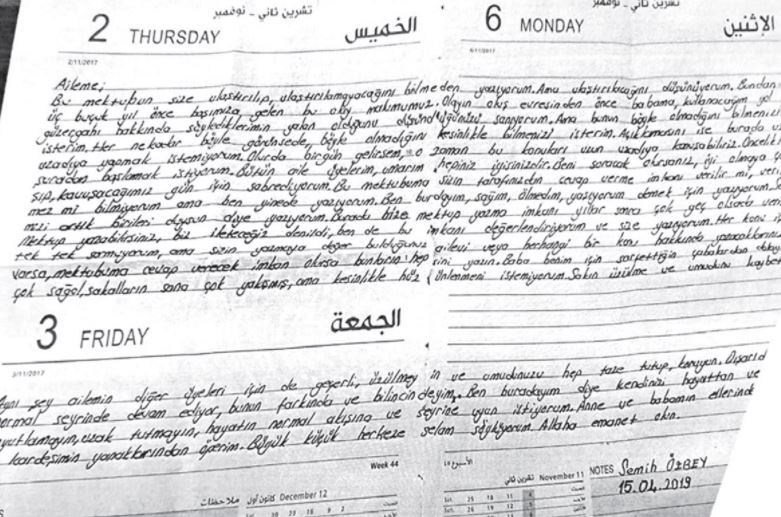 2 THURSDAY الخميس
تشرين ثاني - نوفمبر
2/11/2017
6 MONDAY الإثنين
تشرين ثاني - نوفمبر
6/11/2017
Aileme;
Bu mektubun size ulaştırılıp, ulaştırılamayacağını bilmeden yazıyorum. Ama ulaştırılacağını düşünüyorum. Bundan
üç buçuk yıl önce başımıza gelen bu olay malumumuz. Olayın oluş evresinden önce babama, kullanacağım yol
güzergahı hakkında söylediklerimin yalan olduğunu düşündüğünüzü sanıyorum. Ama bunun böyle olmadığını bilmenizi
isterim. Her nekadar böyle görünsede, böyle olmadığını kesinlikle bilmenizi isterim. Açıklamasını ise burada
uzadıya yapmak istemiyorum. Olurda birgün gelirsem, o zaman bu konuları uzun uzadıya konuşabiliriz.
şuradan başlamak istiyorum. Bütün aile üyelerim, umarım hepiniz iyisinizdir. Beni soracak olursanız, iyi olmaya
şıp, kavuşacağımız gün için sabrediyorum. Bu mektubuma sizin tarafınızdan cevap verme imkanı verilir mi,
mez mi bilmiyorum ama ben yinede yazıyorum. Ben burdayım, sağım, ölmedim, yazıyorum demek için yazıyorum.
mizi artık birileri duysun diye yazıyorum. Burada bize mektup yazma imkanı yıllar sonra çok geç olsada
Mektup yazabilirsiniz, biz ileteceğiz denildi, ben de bu imkanı değerlendiriyorum ve size yazıyorum. Her konu
tek tek sormuyorum, ama sizin yazmaya değer bulduğunuz ailevi veya herhangi bir konu hakkında
varsa, mektubuma cevap verecek imkan olursa bunların hepsini yazın. Baba benim için sarfettiğin çabalardan
çok sağol, sakalların sana çok yakışmış, ama kesinlikle hüzünlenmeni istemiyorum. Sakın üzülme ve umudunu
3 FRIDAY الجمعة
3/11/2017
şey ailemin diğer üyeleri için de geçerli, üzülmeyin ve umudunuzu hep taze tutup, koruyun.
normal seyrinde devam ediyor, bunun farkında ve bilincindeyim. Ben buradayım diye kendinizi hayattan ve
uzak tutmayın, hayatın normal akışına ve seyrine uyun istiyorum. Anne ve babamın ellerinde
kardeşimin yanaklarından öperim. Büyük küçük herkeze selam söylüyorum. Allaha emanet olun.
Week 44 الأسبوع
NOTES Semih ÖZBEY
15.04.2019
ملاحظات
كانون أول December 12
تشرين ثاني November 11